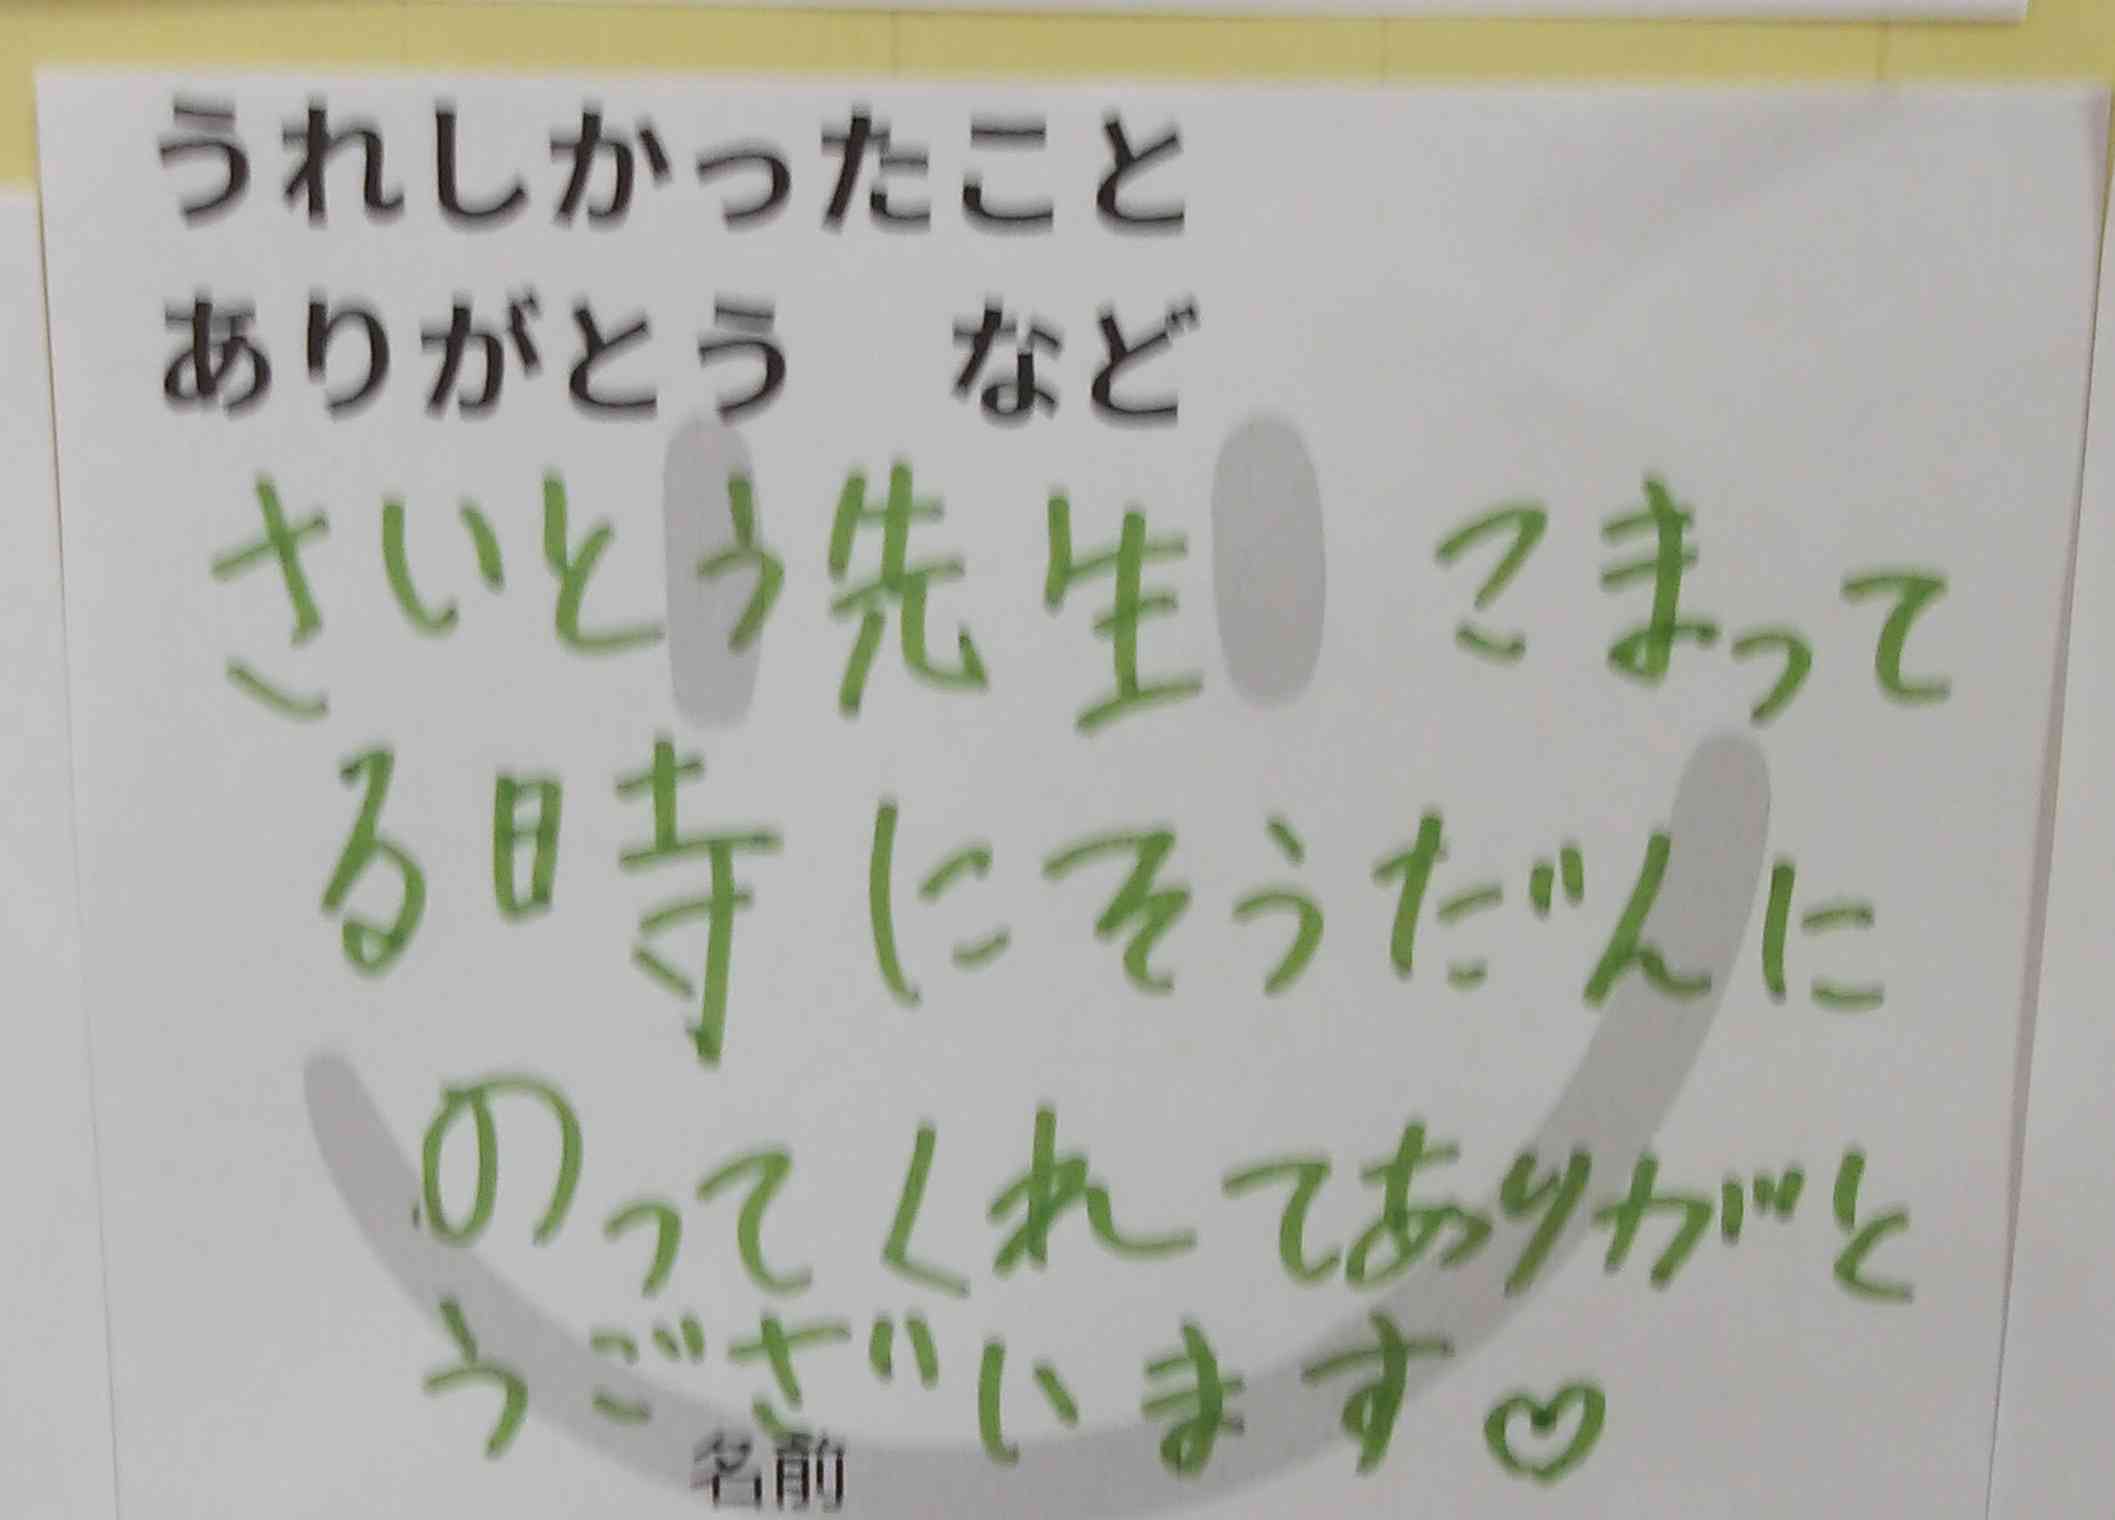 うれしかったこと
ありがとう　など
さいとう先生　こまって
る時にそうだんに
のってくれてありがと
うございます♡
名前